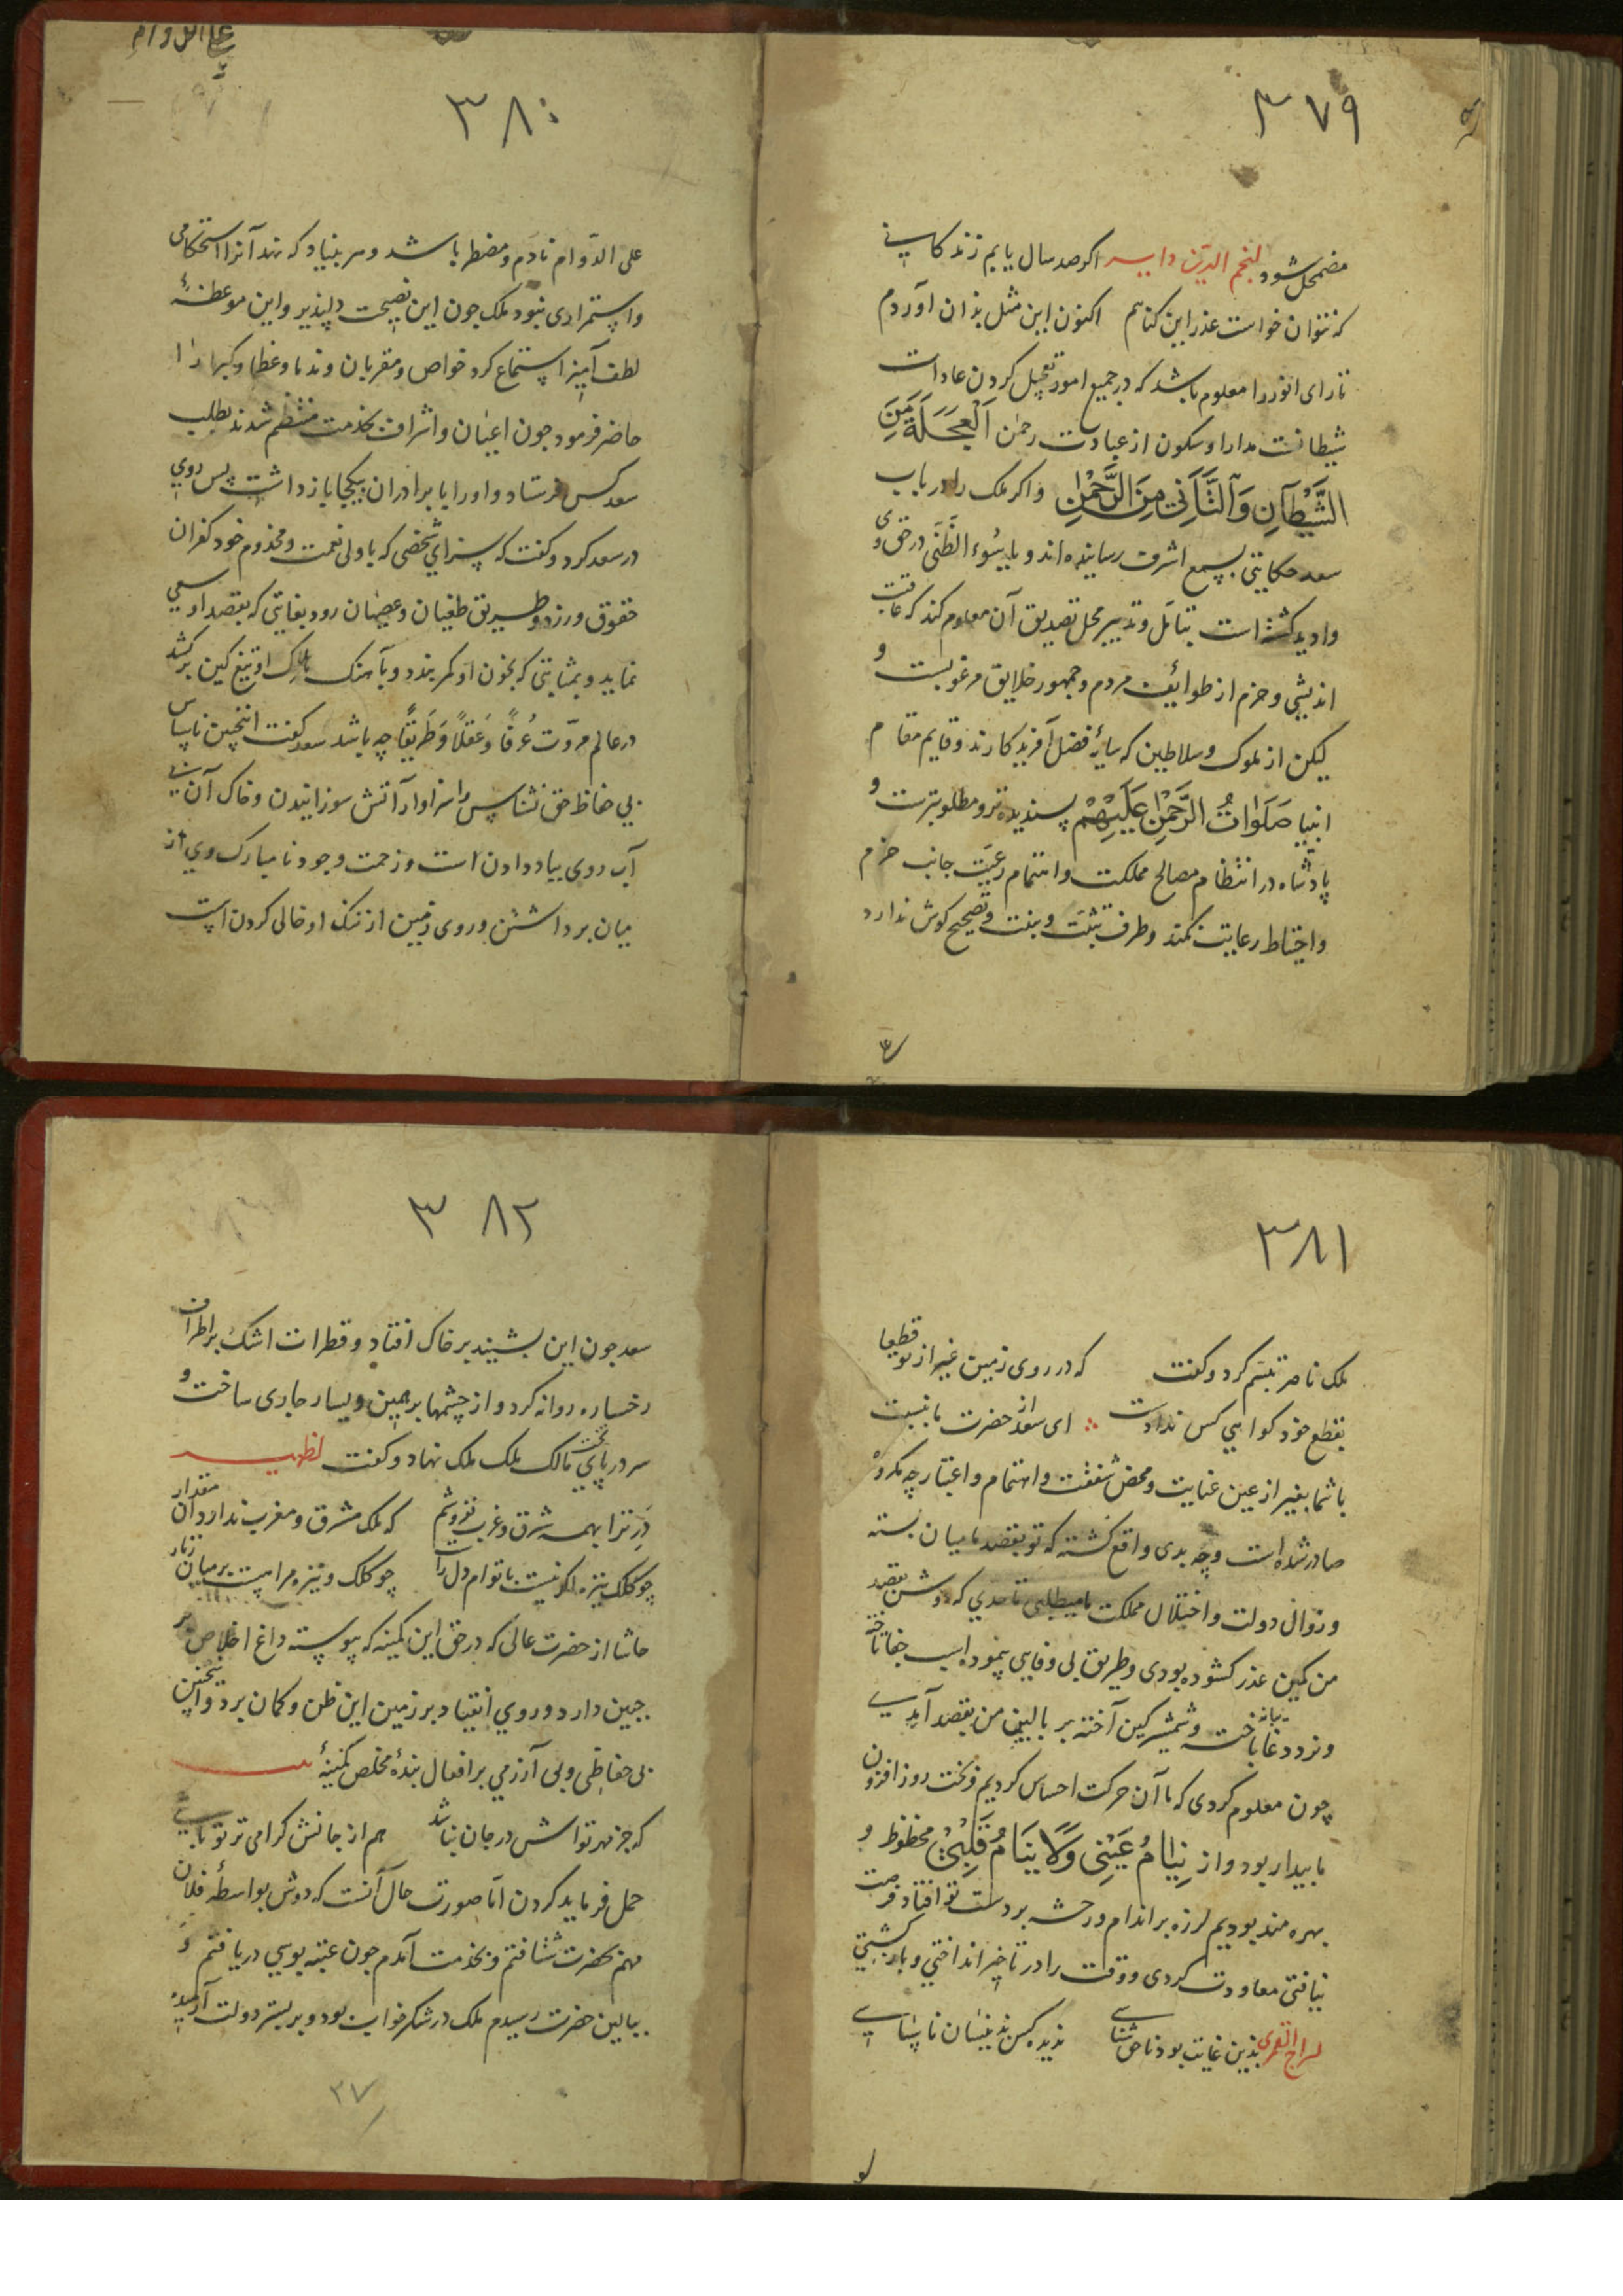 ٣٧٩
مضمحل شود لنجم الدین دایه اکر صد سال یابم زندکانی
که نتوان خواست عذر این کناهم اکنون این مثل بذان آوردم
تا رای انور را معلوم باشد که در جمیع امور تعجیل کردن عادات
شیطانست مدارا و سکون از عبادت رحمن اَلْعَجَلَةُ مِنَ
الشَّیْطَانِ وَالتَّأَنِّی مِنَ الرَّحْمٰنِ و اکر ملک را در باب
سعد حکایتی بسمع اشرف رسانیده اند و یا بسُوء الظَّنّی در حق وی
وادید کشته است بتامّل و تدبیر محل تصدیق آن معلوم کند که عاقبت
اندیشی و حزم از طوائف مردم و جمهور خلایق مرغوبست و
لیکن از ملوک و سلاطین که سایۀ فضل آفریدکارند و قایم مقام
انبیا صَلَوَاتُ الرَّحْمٰنِ عَلَیْهِمْ پسندیده تر و مطلوبترست و
پادشاه در انتظام مصالح مملکت و اهتمام رعیّت جانب حزم
و احتیاط رعایت نکند و طرف تثبّت و تصحیح کوش ندارد
٣٨٠
علی الدّوام نادم و مضطر باشد و سر بنیاد که نهد آنرا استحکامی
و استمراری نبود ملک چون این نصیحت دلپذیر و این موعظۀ
لطف آمیز استماع کرد خواص و مقربان و ندما و عظما و کبرا را
حاضر فرمود چون اعیان و اشراف بخدمت منتظم شدند بطلب
سعد کس فرستاد و او را با برادران بیکجا باز داشت پس روی
در سعد کرد و کفت که سزای شخصی که با ولی نعمت و مخدوم خود کفران
حقوق ورزد و طریق طغیان و عصیان رود بغایتی که بقصد او سعی
نماید و بمثابتی که بخون او کمر بندد و بآهنک هلاک او تیغ کین برکشد
در عالم مروّت عُرفًا وَ عَقلًا وَ طَریقًا چه باشد سعد کفت اینچنین ناسپاس
بی حفاظ حق نشناس را سزاوار آتش سوزانیدن و خاک آن بی
آب روی بباد دادن است و زحمت وجود نامبارک وی از
میان برداشتن و روی زمین از ننک او خالی کردن است
٣٨١
ملک ناصر تبسّم کرد و کفت که در روی زمین غیر از تو قطعا
بقطع خود کواهی کس ندادست ای سعد از حضرت ما نسبت
با شما بغیر از عین عنایت و محض شفقت و اهتمام و اعتبار چه مکروه
صادر شده است و چه بدی واقع کشته که تو بقصد ما میان بسته
و زوال دولت و اختلال مملکت ما میطلبی تا حدی که دوش بقصد
من کمین عذر کشوده بودی و طریق بی وفایی پیموده اسب جفا تاخته
و نرد دغا باخته و شمشیر کین آخته بر بالین من بقصد آمدی
چون معلوم کردی که ما آن حرکت احساس کردیم و بخت روز افزون
ما بیدار بود و از یَنَامُ عَیْنِی وَلَا یَنَامُ قَلْبِی محظوظ و
بهره مند بودیم لرزه بر اندام و رعشه بر دست تو افتاد فرصت
نیافتی معاودت کردی و وقت را در تاخیر انداختی و باز کشتی
سراج القمری بذین غایت بود ناحق شناسی ندیده کس بدینسان ناسپاسی
٣٨٢
سعد چون این بشنید بر خاک افتاد و قطرات اشک بر اطراف
رخساره روانه کرد و از چشمها بر یمین و یسار جاری ساخت و
سر در پای تخت مالک ملک ملک نهاد و کفت لظهیر
دَرِ ترا بهمه شرق و غرب نفروشم که ملک مشرق و مغرب ندارد آن مقدار
چو کلک نیزه اکر نیست با توام دل راست چو کلک و نیزه مرا هست بر میان زنار
حاشا از حضرت عالی که در حق این کمینه که پیوسته داغ اخلاص بر
جبین دارد و روی انقیاد بر زمین این ظن و کمان برد و اینچنین
بی حفاظی و بی آزرمی بر افعال بندۀ مخلص کمینۀ
که جز مهر تواش در جان نباشد هم از جانش کرامی تر تو باشی
حمل فرماید کردن امّا صورت حال آنست که دوش بواسطۀ فلان
مهم بحضرت شتافتم و بخدمت آمدم چون عتبه بوسی دریافتم و
ببالین حضرت رسیدم ملک در شکر خواب بود و بر بستر دولت آرمیده
٢٧